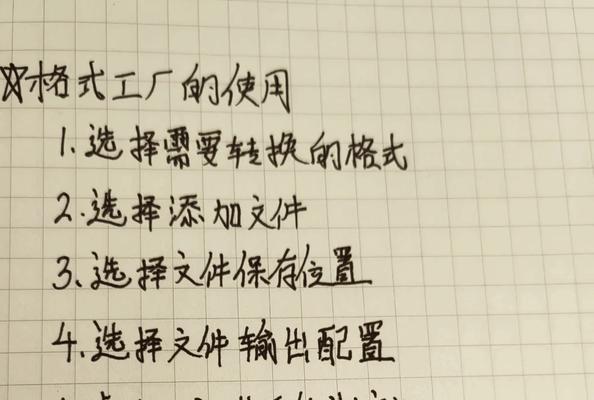 ☆格式工厂的使用
1.选择需要转换的格式
2.选择添加文件
3.选择文件保存位置
4.选择文件输出配置